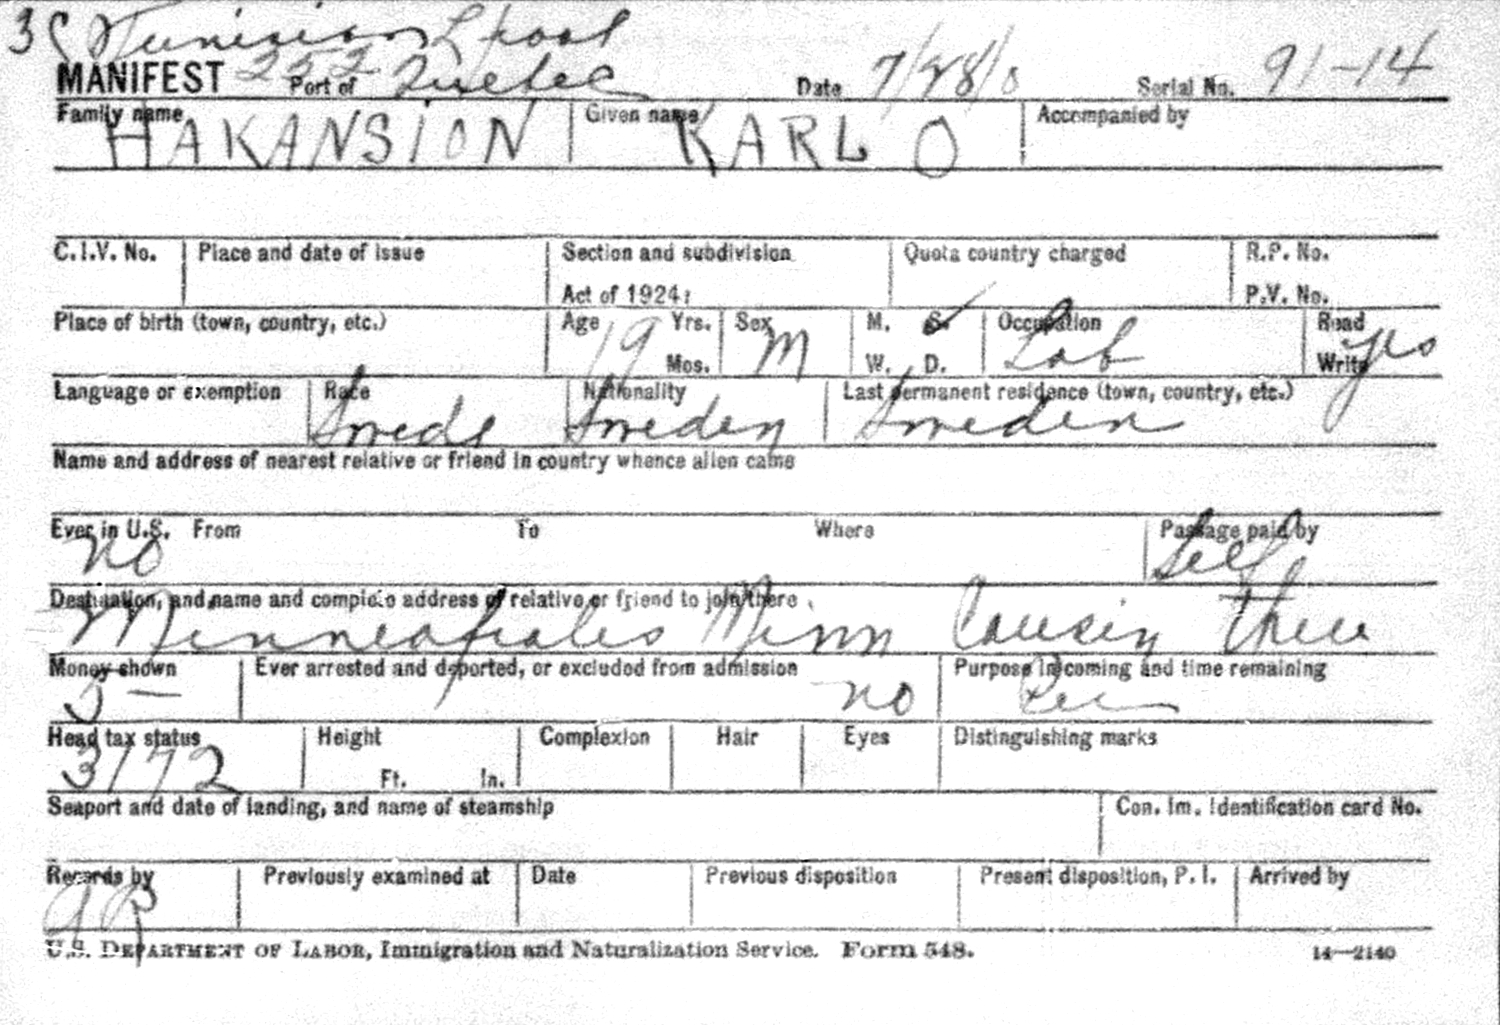 3C Tunisian Lpool
MANIFEST 252 Port of Quebec Date 7/28/0 Serial No. 91-14
Family name HAKANSION Given name KARL O Accompanied by
C.I.V. No. Place and date of issue Section and subdivision Quota country charged R.P. No.
Act of 1924: P.V. No.
Place of birth (town, country, etc.) Age 19 Yrs. Sex M M. S. Occupation Lab Read yes
Mos. W. D. Write
Language or exemption Race Swede Nationality Sweden Last permanent residence (town, country, etc.) Sweden
Name and address of nearest relative or friend in country whence alien came
Ever in U.S. no From To Where Passage paid by Self
Destination, and name and complete address of relative or friend to join there
Minneapolis Minn Cousin there
Money shown 5- Ever arrested and deported, or excluded from admission no Purpose in coming and time remaining
Head tax status 3172 Height Ft. In. Complexion Hair Eyes Distinguishing marks
Seaport and date of landing, and name of steamship Con. Im. Identification card No.
Records by Previously examined at Date Previous disposition Present disposition, P. I. Arrived by
U.S. DEPARTMENT OF LABOR, Immigration and Naturalization Service. Form 548. 14—2140